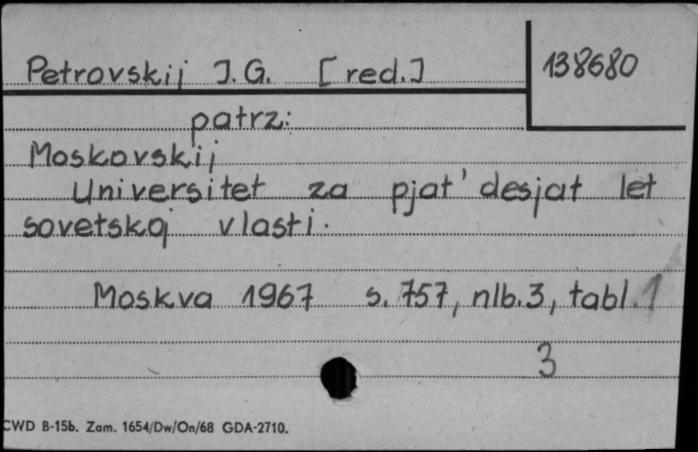 Petrovskij I. G. [red.] 138680
patrz:
Moskovskij
Universitet za pjat' desjat let
sovetskoj vlasti.
Moskva 1967 s. 757, nlb. 3, tabl. 1
3
CWD B-15b. Zam. 1654/Dw/On/68 GDA-2710.